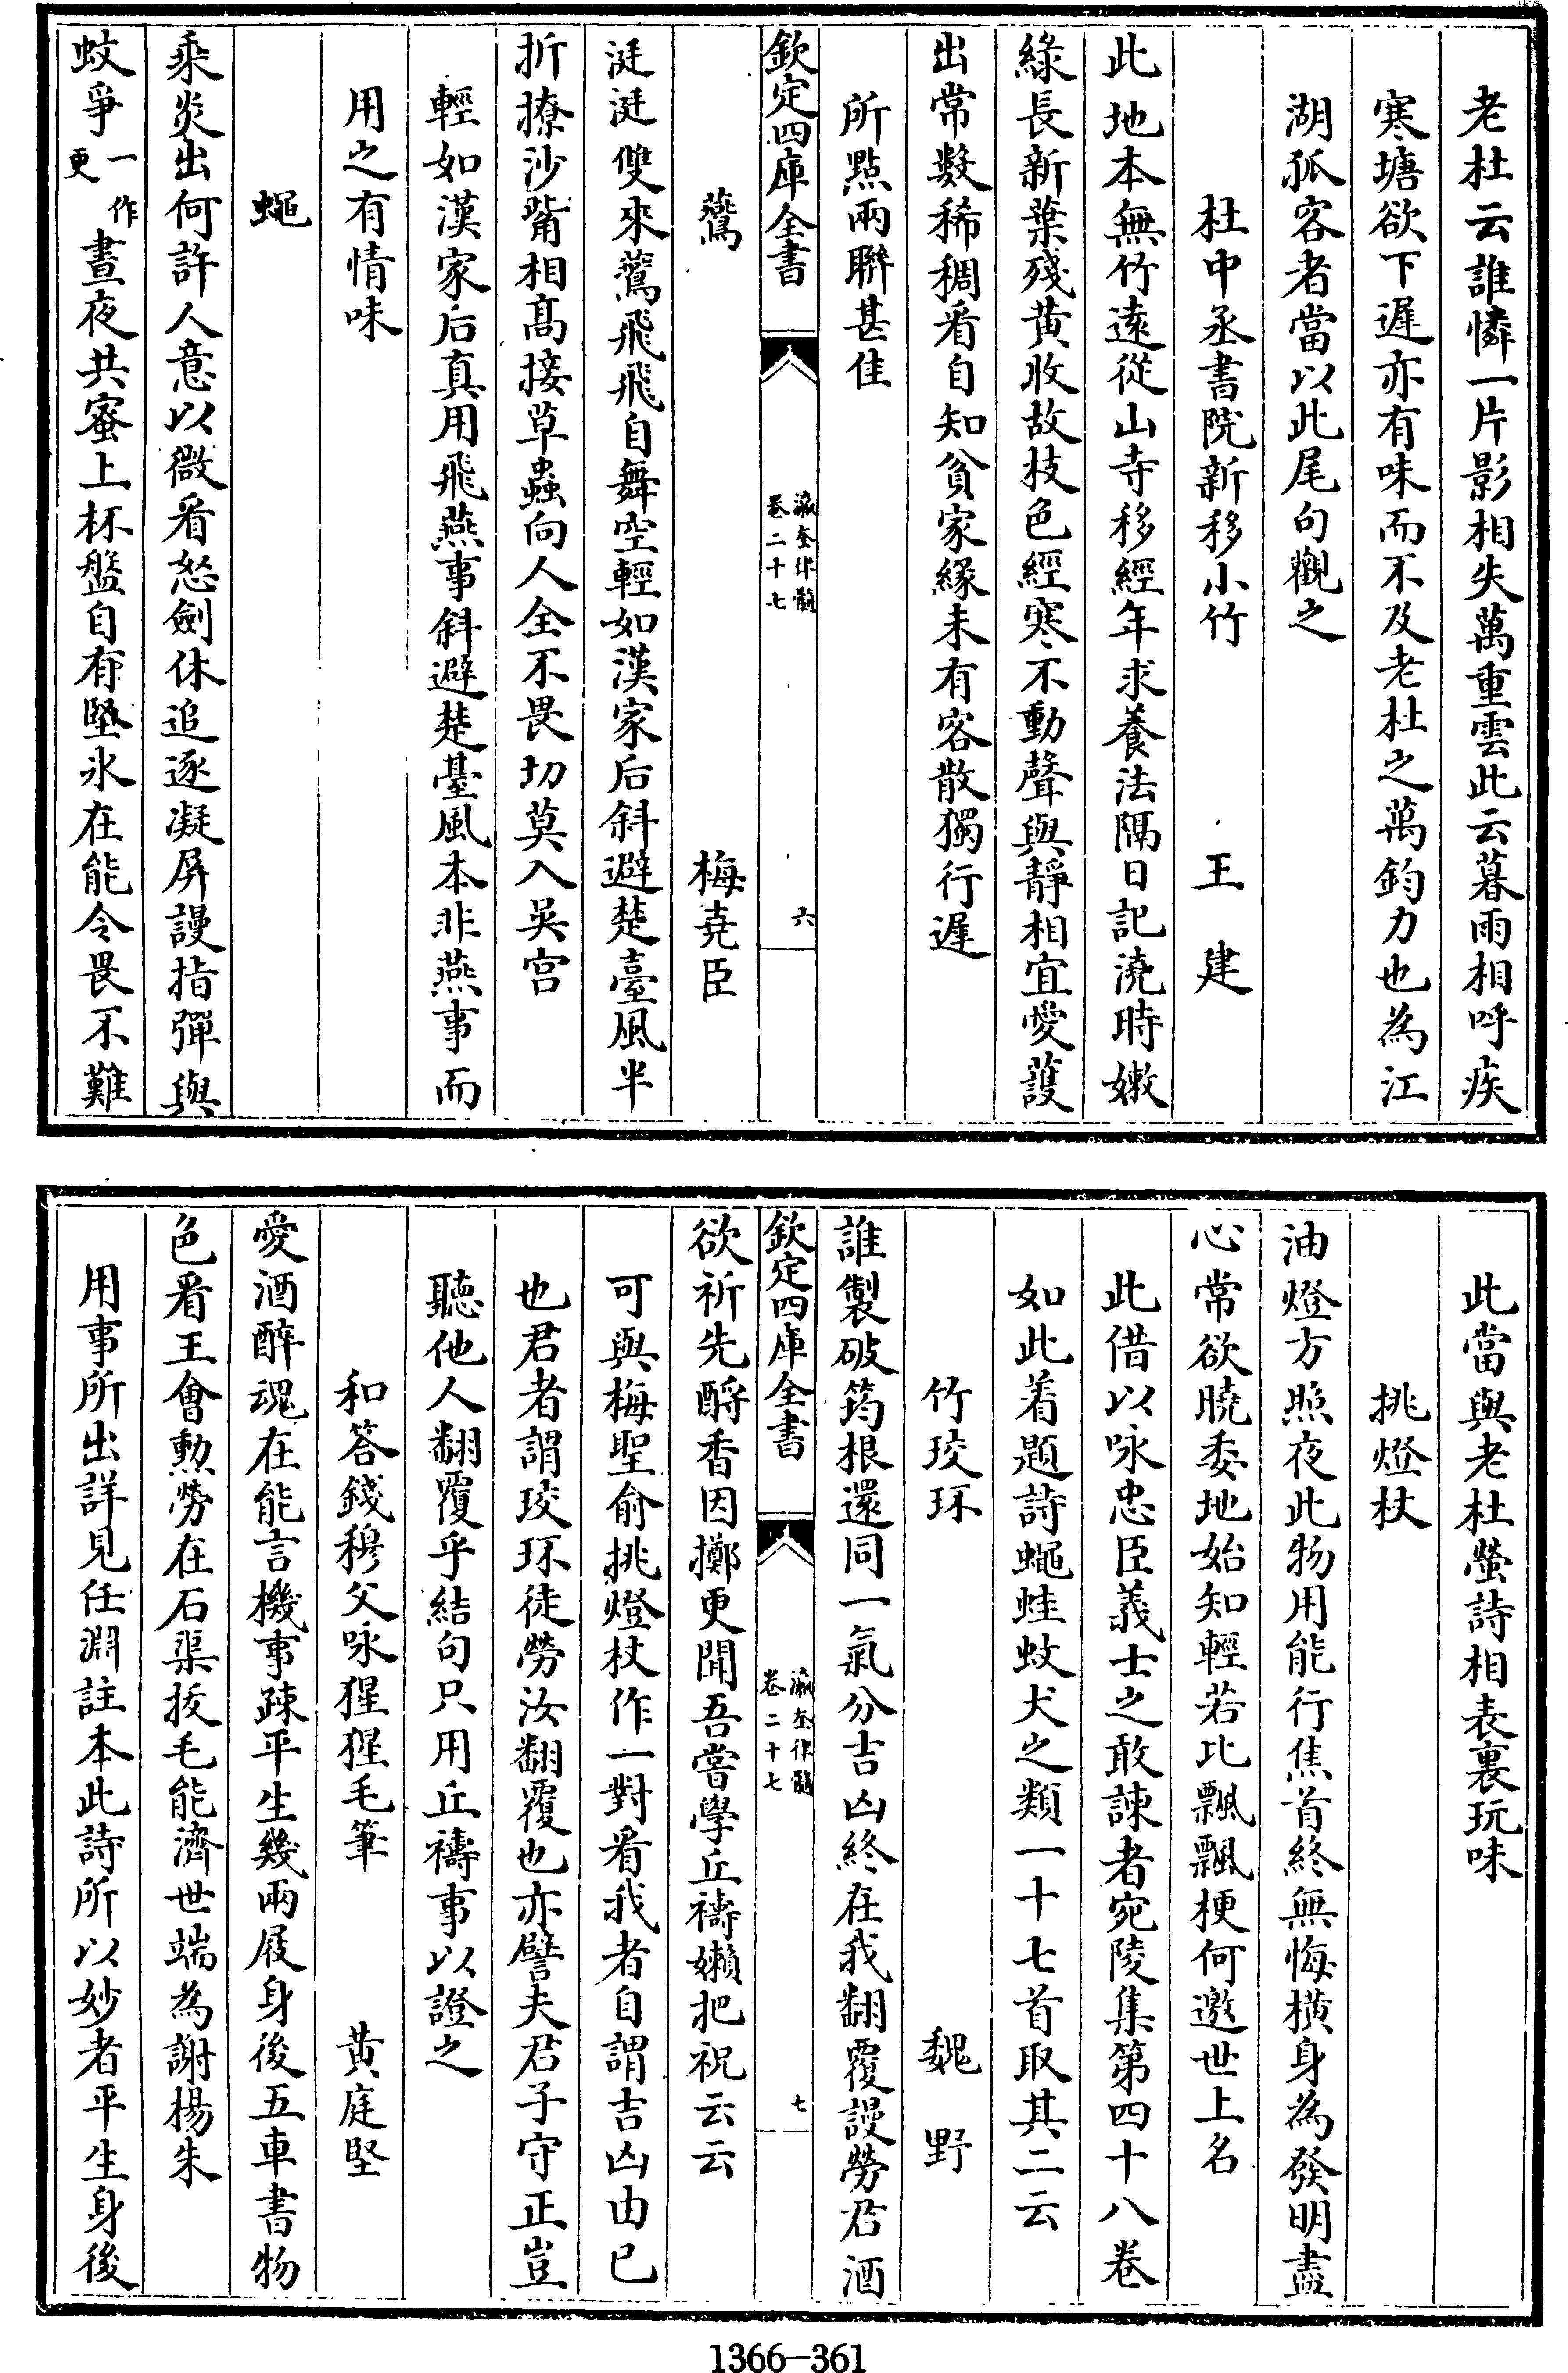 老杜云誰憐一片影相失萬重雲此云暮雨相呼疾
寒塘欲下遲亦有味而不及老杜之萬鈞力也為江
湖孤客者當以此尾句觀之
杜中丞書院新移小竹 王建
此地本無竹遠從山寺移經年求養法隔日記澆時嫩
綠長新葉殘黄收故枝色經寒不動聲與靜相宜愛護
出常數稀稠看自知貧家緣未有客散獨行遲
所點兩聯甚佳
欽定四庫全書 瀛奎律髓 卷二十七 六
鷰 梅堯臣
涎涎雙來鷰飛飛自舞空輕如漢家后斜避楚臺風半
折撩沙觜相髙接草蟲向人全不畏切莫入吳宫
輕如漢家后真用飛燕事斜避楚臺風本非燕事而
用之有情味
蠅
乘炎出何許人意以微看怒劍休追逐凝屏謾指彈與
蚊爭一作更晝夜共蜜上杯盤自有堅氷在能令畏不難
此當與老杜螢詩相表裏玩味
挑燈杖
油燈方照夜此物用能行焦首終無悔橫身為發明盡
心常欲曉委地始知輕若比飄飄梗何邀世上名
此借以咏忠臣義士之敢諫者宛陵集第四十八卷
如此着題詩蠅蛙蚊犬之類一十七首取其二云
竹珓環 魏野
誰製破筠根還同一氣分吉凶終在我翻覆謾勞君酒
欽定四庫全書 瀛奎律髓 卷二十七 七
欲祈先酹香因擲更聞吾嘗學丘禱嬾把祝云云
可與梅聖俞挑燈杖作一對看我者自謂吉凶由已
也君者謂珓環徒勞汝翻覆也亦譬夫君子守正豈
聽他人翻覆乎結句只用丘禱事以證之
和答錢穆父咏猩猩毛筆 黄庭堅
愛酒醉魂在能言機事疎平生幾兩屐身後五車書物
色看王會勲勞在石渠拔毛能濟世端為謝楊朱
用事所出詳見任淵註本此詩所以妙者平生身後
1366-361